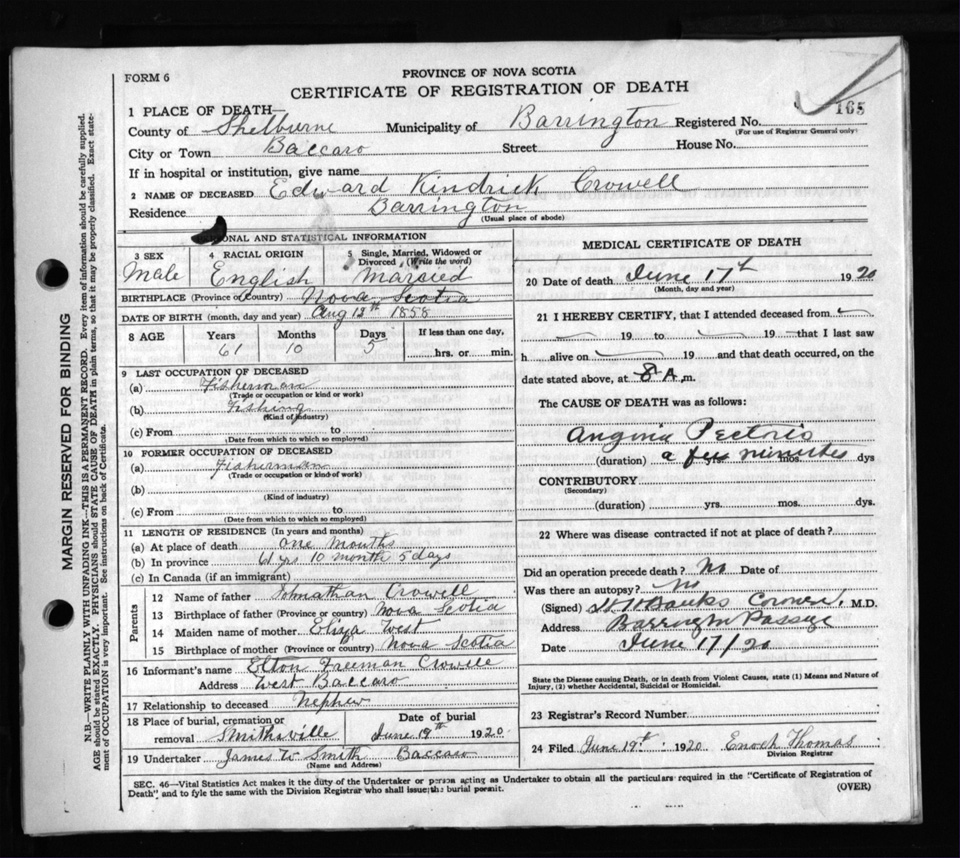 FORM 6
PROVINCE OF NOVA SCOTIA
CERTIFICATE OF REGISTRATION OF DEATH
165
1 PLACE OF DEATH—
County of Shelburne Municipality of Barrington Registered No.
(For use of Registrar General only)
City or Town Baccaro Street House No.
If in hospital or institution, give name
2 NAME OF DECEASED Edward Kindrick Crowell
Residence Barrington
(Usual place of abode)
ONAL AND STATISTICAL INFORMATION
3 SEX 4 RACIAL ORIGIN 5 Single, Married, Widowed or Divorced (Write the word)
Male English Married
BIRTHPLACE (Province or Country) Nova Scotia
DATE OF BIRTH (month, day and year) Aug 12th 1858
8 AGE Years Months Days If less than one day,
61 10 5 hrs. or min.
9 LAST OCCUPATION OF DECEASED
(a) Fisherman
(Trade or occupation or kind or work)
(b) Fishing
(Kind of industry)
(c) From to
(Date from which to which so employed)
10 FORMER OCCUPATION OF DECEASED
(a) Fisherman
(Trade or occupation or kind of work)
(b)
(Kind of industry)
(c) From to
(Date from which to which so employed)
11 LENGTH OF RESIDENCE (In years and months)
(a) At place of death one Months
(b) In province 61 yrs 10 month 5 days
(c) In Canada (if an immigrant)
Parents
12 Name of father Johnathan Crowell
13 Birthplace of father (Province or country) Nova Scotia
14 Maiden name of mother Eliza West
15 Birthplace of mother (Province or country) Nova Scotia
16 Informant's name Elton Freeman Crowell
Address West Baccaro
17 Relationship to deceased Nephew
18 Place of burial, cremation or removal Smithsville Date of burial June 19th 1920
19 Undertaker James W Smith Baccaro
(Name and Address)
MEDICAL CERTIFICATE OF DEATH
20 Date of death June 17th 1920
(Month, day and year)
21 I HEREBY CERTIFY, that I attended deceased from
19 to 19 that I last saw
h alive on 19 and that death occurred, on the
date stated above, at 8 A. m.
The CAUSE OF DEATH was as follows:
Angina Pectoris
(duration) a few minutes yrs. mos. dys
CONTRIBUTORY
(Secondary)
(duration) yrs. mos. dys.
22 Where was disease contracted if not at place of death?
Did an operation precede death? No Date of
Was there an autopsy? No
(Signed) Banks M.D.
Address Barrington Passage
Date June 17/20
State the Disease causing Death, or in death from Violent Causes, state (1) Means and Nature of
Injury, (2) whether Accidental, Suicidal or Homicidal.
23 Registrar's Record Number
24 Filed June 19th 1920 Enoch Thomas
Division Registrar
SEC. 46—Vital Statistics Act makes it the duty of the Undertaker or person acting as Undertaker to obtain all the particulars required in the "Certificate of Registration of
Death" and to fyle the same with the Division Registrar who shall issue the burial permit.
(OVER)
MARGIN RESERVED FOR BINDING
N.B.—WRITE PLAINLY WITH UNFADING INK—THIS IS A PERMANENT RECORD. Every item of information should be carefully supplied.
AGE should be stated EXACTLY. PHYSICIANS should STATE CAUSE OF DEATH in plain terms, so that it may be properly classified. Exact statement
of OCCUPATION is very important. See instructions on back of Certificate.